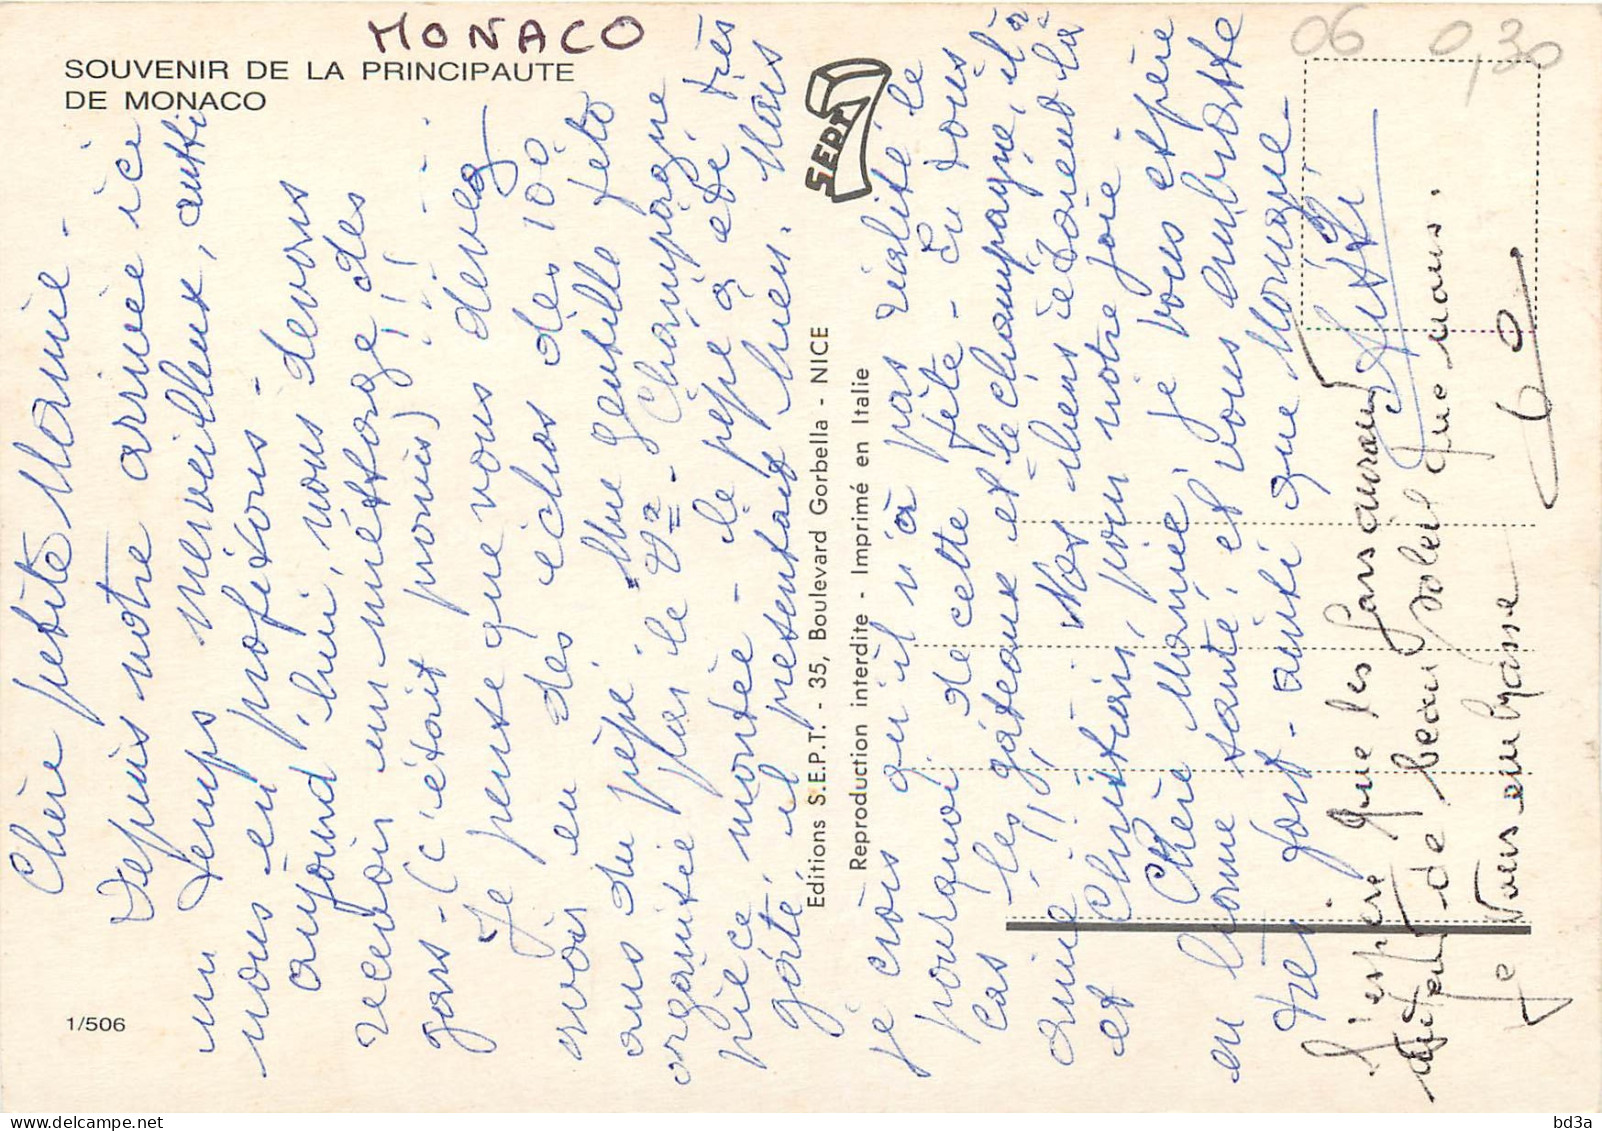 MONACO
06 0,30
SOUVENIR DE LA PRINCIPAUTE
DE MONACO
1/506
SEPT
Editions S.E.P.T. - 35, Boulevard Gorbella - NICE
Reproduction interdite - Imprimé en Italie
Chère petite Mamie -
Depuis notre arrivée ici
un temps merveilleux, aussi
nous en profitons -
aujourd'hui, nous devons
recevoir un métrage des
gars - (c'était promis) !!! ...
Je pense que vous devez
avoir eu des échos des 100
ans du pépé. Une gentille fête
organisée par le V= - Champagne
pièce montée - le pépé a été très
gâté, il présentait bien. Mais
je crois qu'il n'a pas réalisé le
pourquoi de cette fête - En tous
cas les gâteaux et le champagne, il a
aimé !!! Nos chiens étaient là
et Christian, pour notre joie.
Chère Mamie, je vous espère
en bonne santé, et vous embrasse
très fort - ainsi que Monique -
J'espère que les Pars auront
autant de beau soleil que nous.
Je vous embrasse